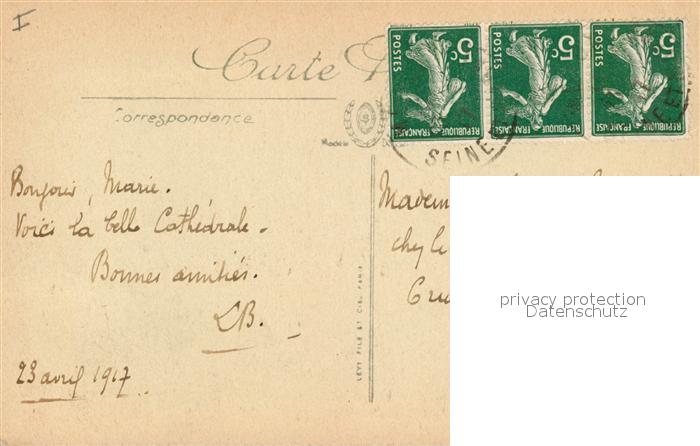 I
Carte
Correspondance
Modèle
5c
POSTES
REPUBLIQUE FRANÇAISE
5c
POSTES
REPUBLIQUE FRANÇAISE
5c
POSTES
REPUBLIQUE FRANÇAISE
SEINE
Bonjour, Marie.
Voici la belle Cathédrale.
Bonnes amitiés.
LB.
23 avril 1917
LEVY FILS ET CIE, PARIS
Madem
chez le
privacy protection
Datenschutz